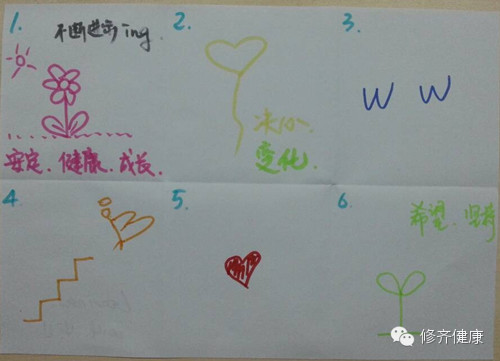 1.
不断进步ing
安定、健康、成长.
2.
变化.
3.
W W
4
5.
6.
希望、思考
修齐健康